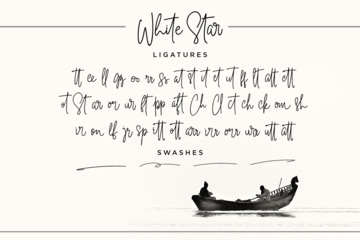 White Star
LIGATURES
tt ee ll gg oo rr ss at st it et ut ft lt alt ett
ot St ar or ur ft pp aft Ch Cl ct ch ck om sh
vr on lf jr sp itt ott arr irr orr urr utt att
SWASHES